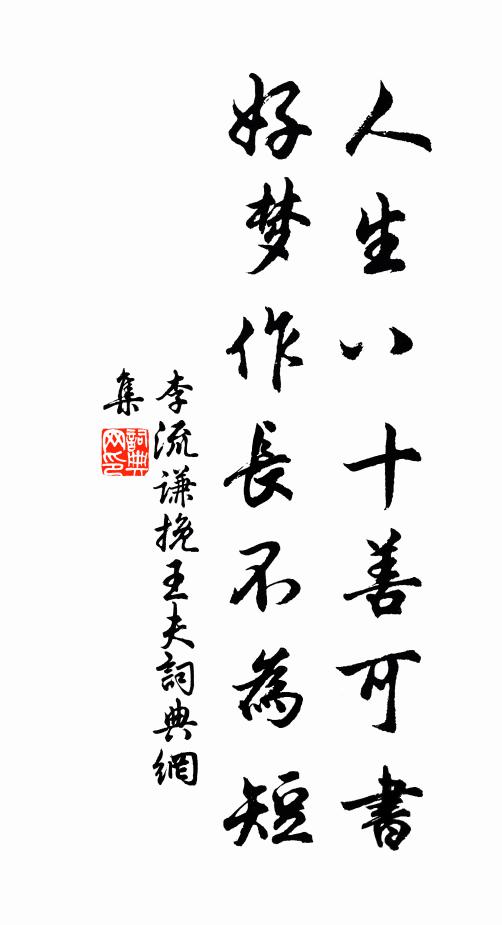 人生八十善可書
好梦作長不為短
李流谦挽王夫詞典網
集
詞典网印